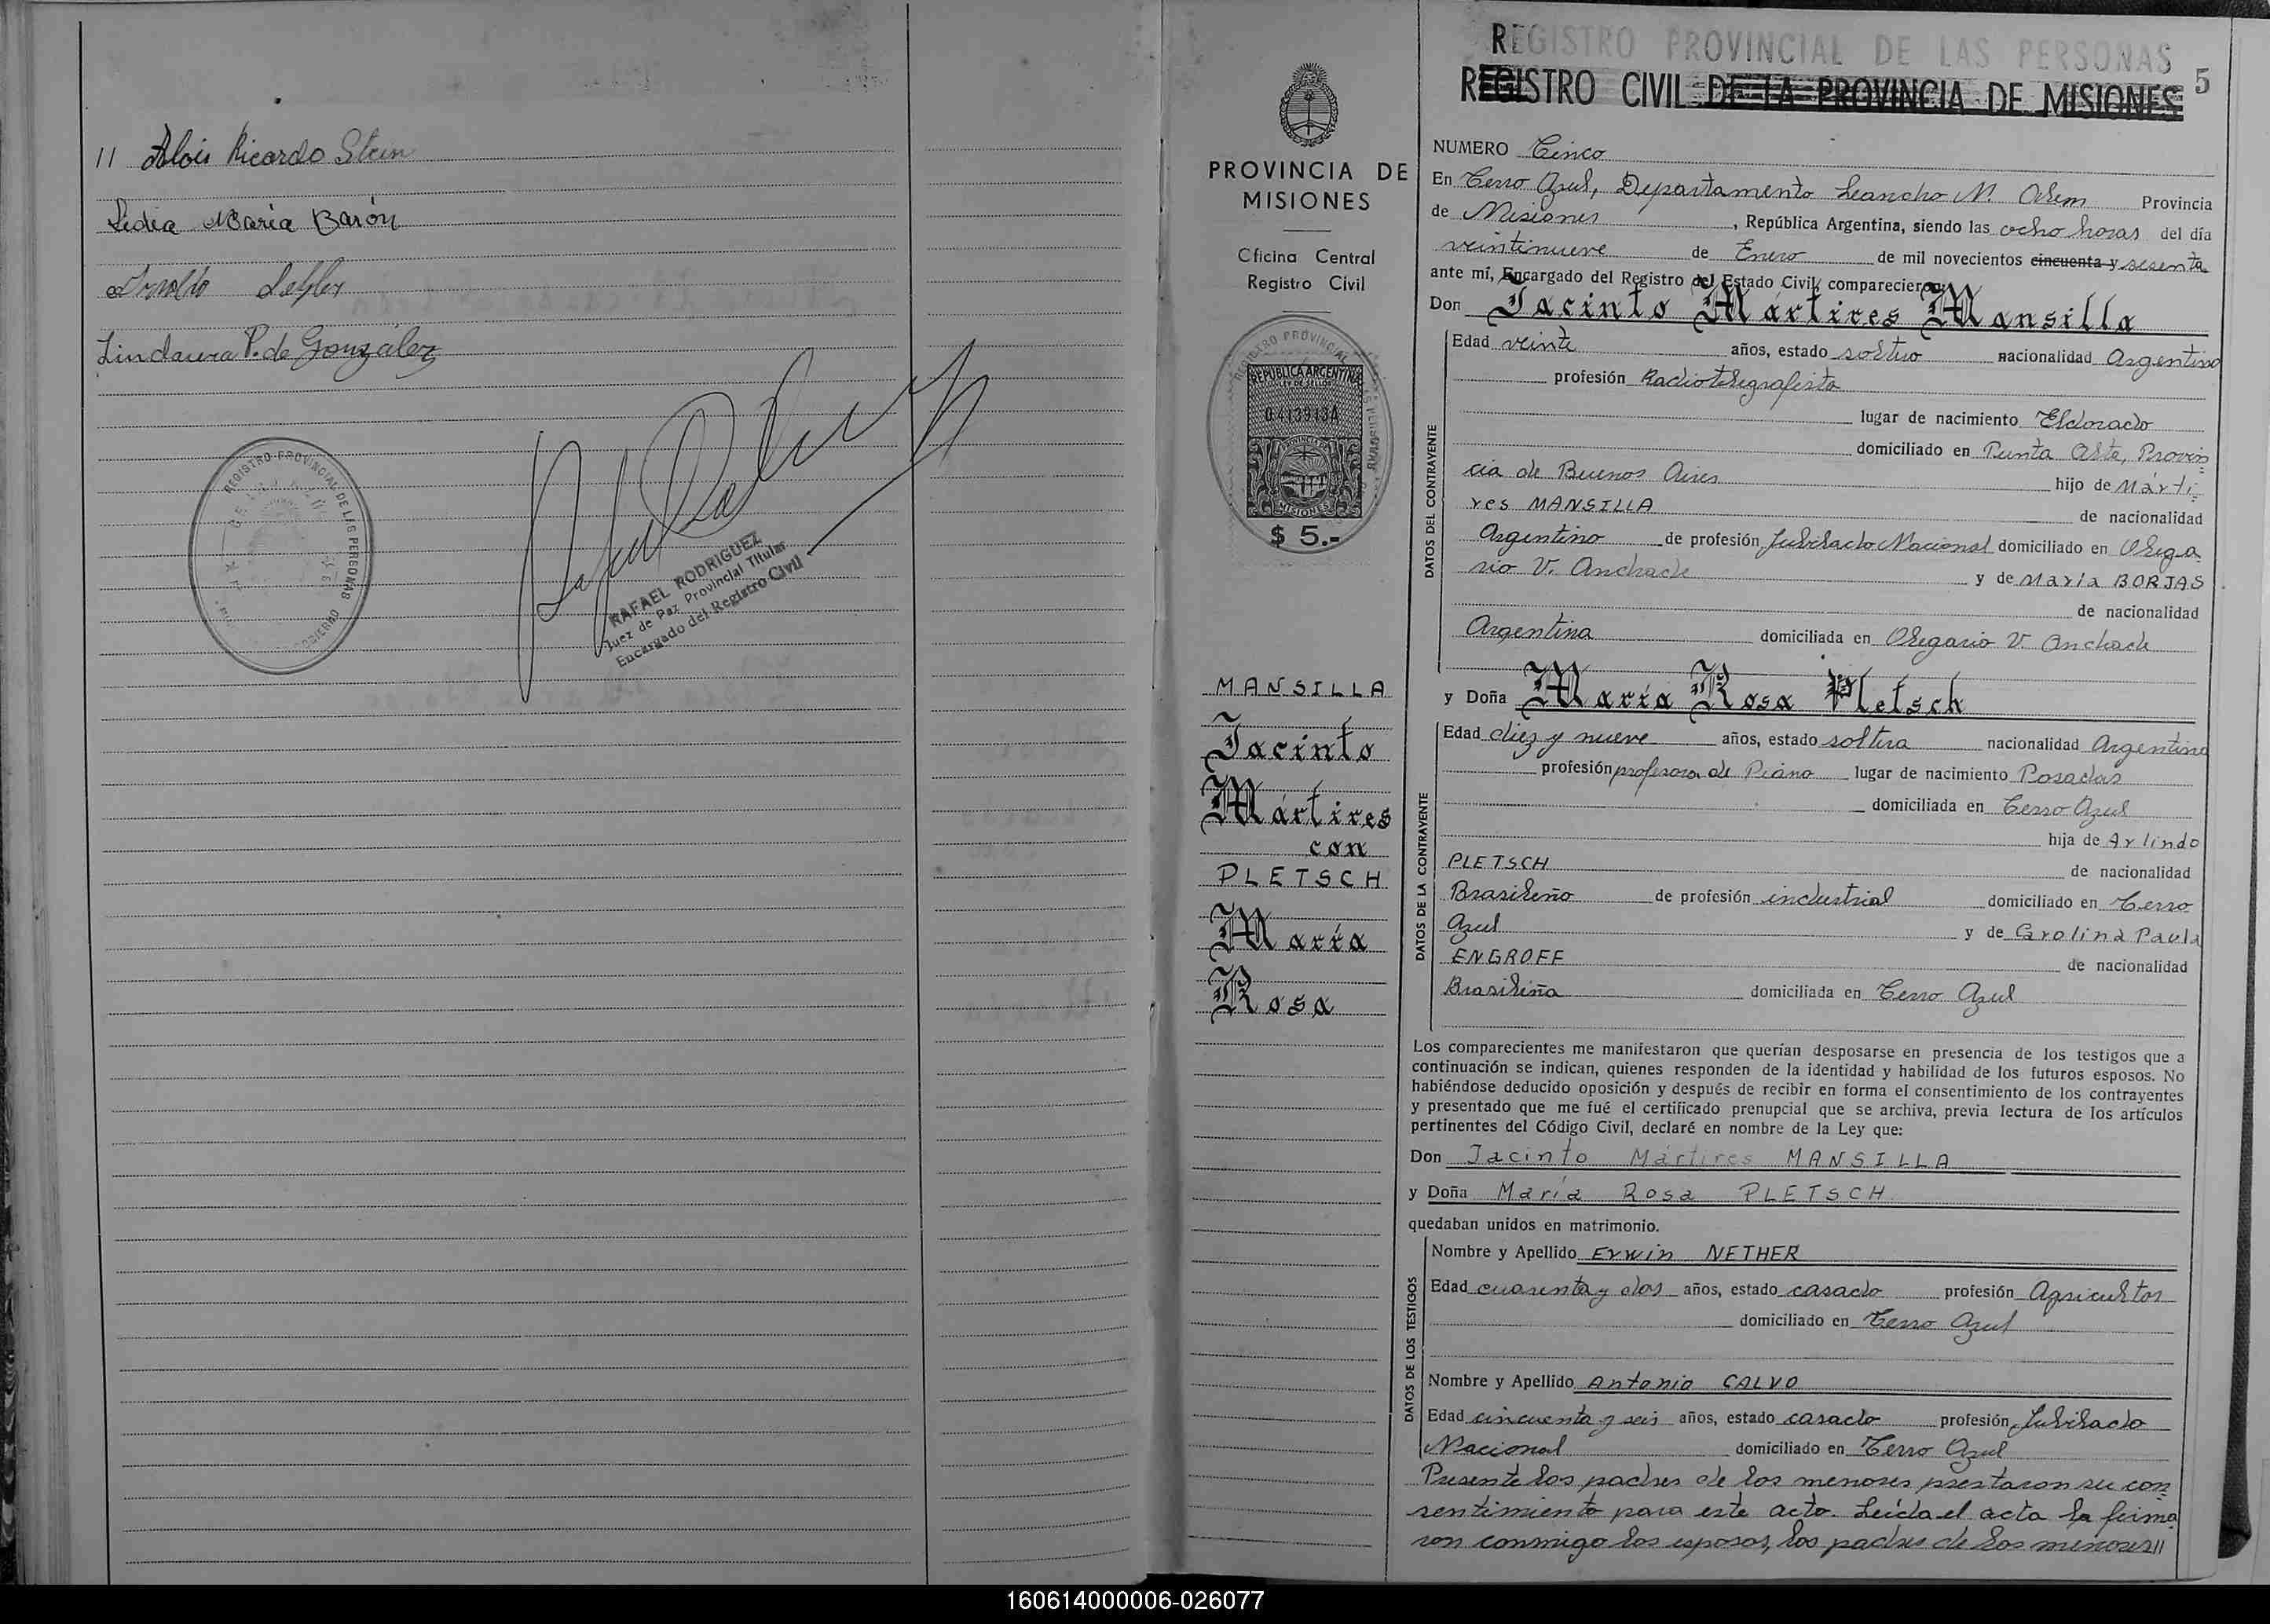 11 Alois Ricardo Stein
Lidia Maria Barón
Lindaura P. de González
REGISTRO PROVINCIAL DE LAS PERSONAS
RAFAEL RODRIGUEZ
Juez de Paz Provincial Titular
Encargado del Registro Civil
PROVINCIA DE
MISIONES
Oficina Central
Registro Civil
REGISTRO PROVINCIAL
REPUBLICA ARGENTINA
LEY DE SELLOS
0413913A
PROVINCIA DE
MISIONES
$ 5.-
MANSILLA
Jacinto
Mártires
con
PLETSCH
María
Rosa
REGISTRO PROVINCIAL DE LAS PERSONAS
REGISTRO CIVIL DE LA PROVINCIA DE MISIONES
5
NUMERO Cinco
En Cerro Azul, Departamento Leandro N. Alem Provincia
de Misiones, República Argentina, siendo las ocho horas del día
veintinueve de Enero de mil novecientos cincuenta y sesenta
ante mí, Encargado del Registro del Estado Civil, comparecieron:
Don Jacinto Mártires Mansilla
DATOS DEL CONTRAYENTE
Edad veinte años, estado soltero nacionalidad Argentino
profesión Radiotelegrafista
lugar de nacimiento Eldorado
domiciliado en Punta Alta, Provin
cia de Buenos Aires hijo de Márti
res MANSILLA de nacionalidad
Argentino de profesión Jubilado Nacional domiciliado en Olega
rio V. Andrade y de María BORJAS
de nacionalidad
Argentina domiciliada en Olegario V. Andrade
y Doña María Rosa Pletsch
DATOS DE LA CONTRAYENTE
Edad diez y nueve años, estado soltera nacionalidad Argentina
profesión profesora de Piano lugar de nacimiento Posadas
domiciliada en Cerro Azul
hija de Arlindo
PLETSCH de nacionalidad
Brasileño de profesión industrial domiciliado en Cerro
Azul y de Carolina Paula
ENGROFF de nacionalidad
Brasileña domiciliada en Cerro Azul
Los comparecientes me manifestaron que querían desposarse en presencia de los testigos que a
continuación se indican, quienes responden de la identidad y habilidad de los futuros esposos. No
habiéndose deducido oposición y después de recibir en forma el consentimiento de los contrayentes
y presentado que me fué el certificado prenupcial que se archiva, previa lectura de los artículos
pertinentes del Código Civil, declaré en nombre de la Ley que:
Don Jacinto Mártires MANSILLA
y Doña María Rosa PLETSCH
quedaban unidos en matrimonio.
DATOS DE LOS TESTIGOS
Nombre y Apellido Erwin NETHER
Edad cuarenta y dos años, estado casado profesión Agricultor
domiciliado en Cerro Azul
Nombre y Apellido Antonio CALVO
Edad cincuenta y seis años, estado casado profesión Jubilado
Nacional domiciliado en Cerro Azul
Presente los padres de los menores prestaron su con
sentimiento para este acto. Leída el acta la firma
ron conmigo los esposos, los padres de los menores//
160614000006-026077